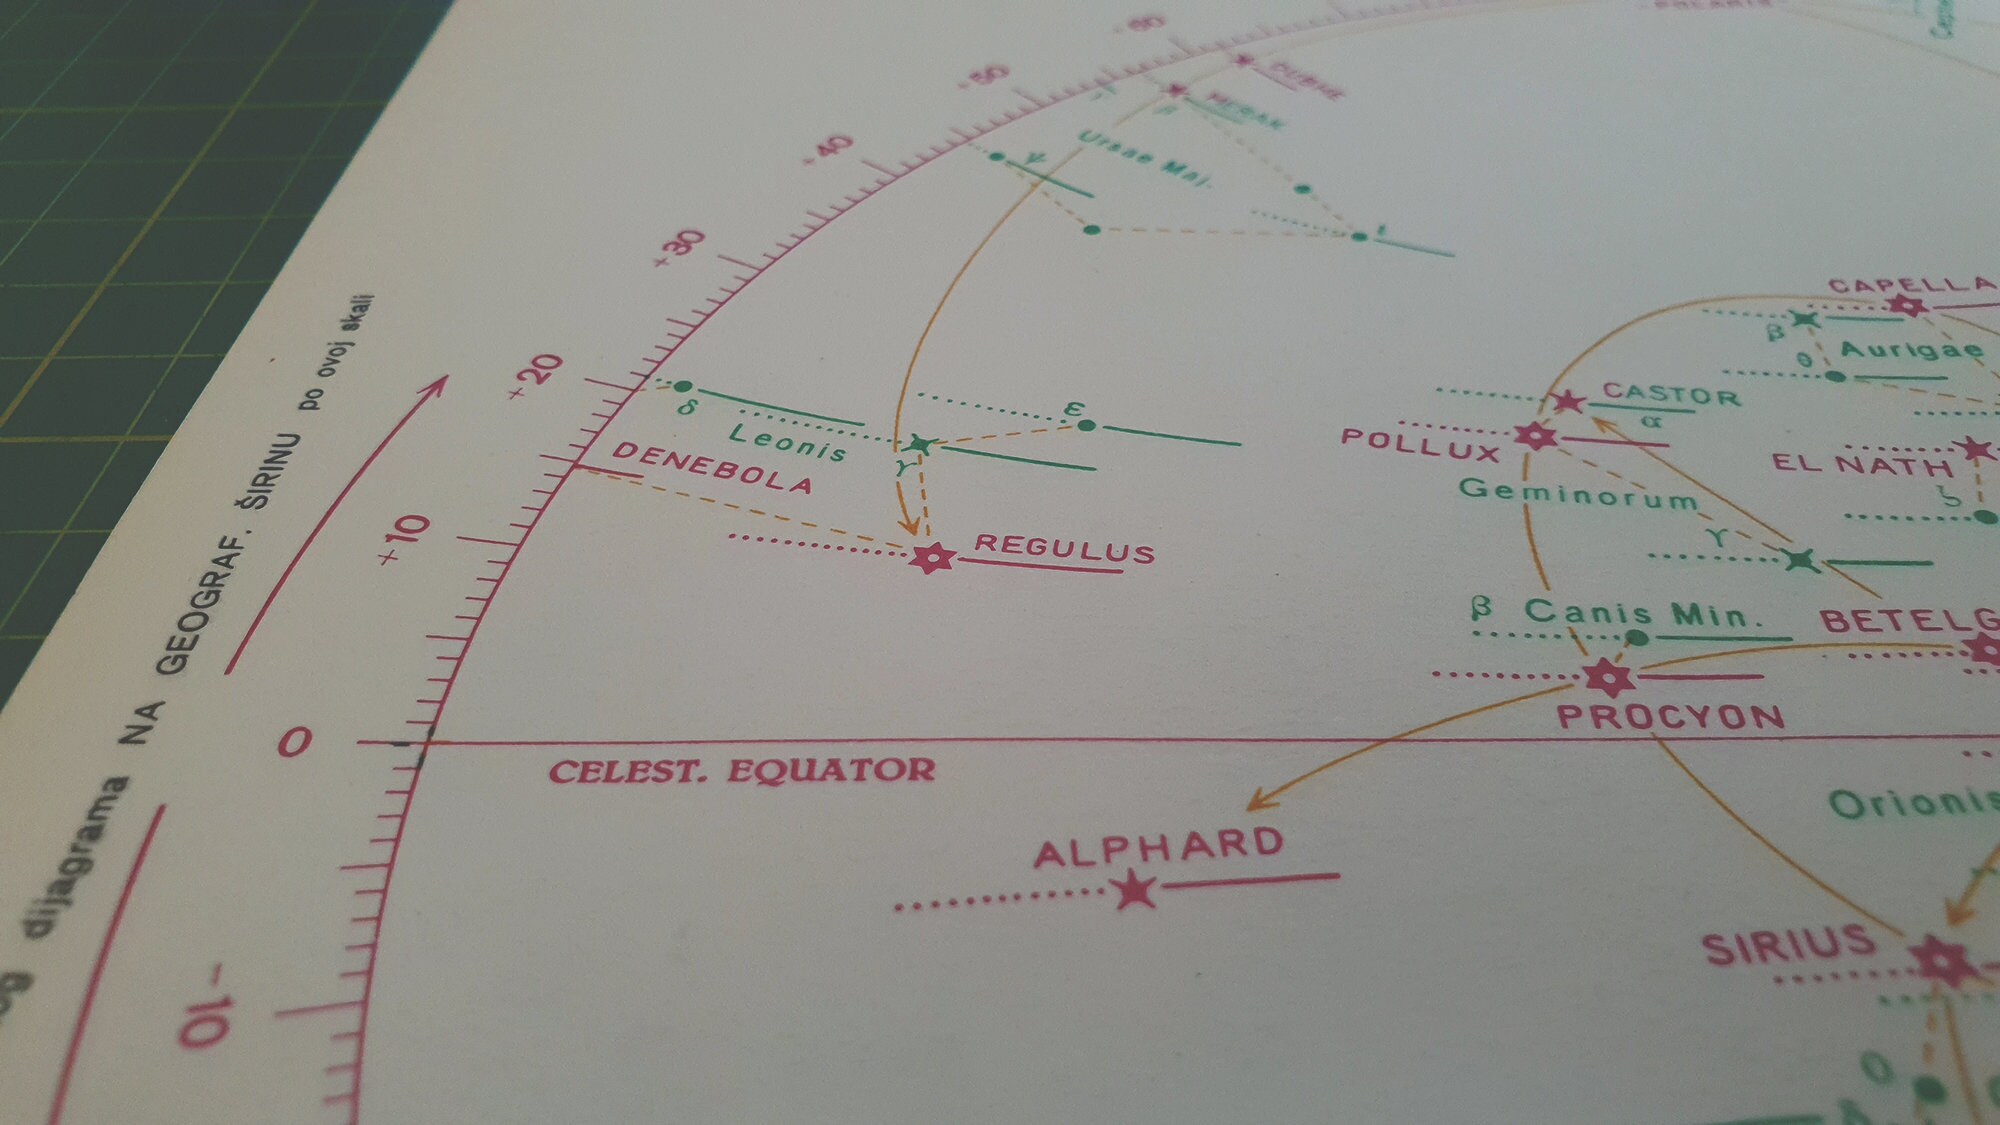 POLARIS
+60
DUBHE
+50
MERAK
β
+40
ψ
Ursae Mai.
ι
+30
CAPELLA
β
θ
Aurigae
+20
δ
Leonis
ε
γ
CASTOR
α
POLLUX
EL NATH
Geminorum
ζ
γ
DENEBOLA
REGULUS
+10
β Canis Min.
BETELG
PROCYON
0
CELEST. EQUATOR
Orionis
ALPHARD
SIRIUS
-10
dijagrama NA GEOGRAF. ŠIRINU po ovoj skali